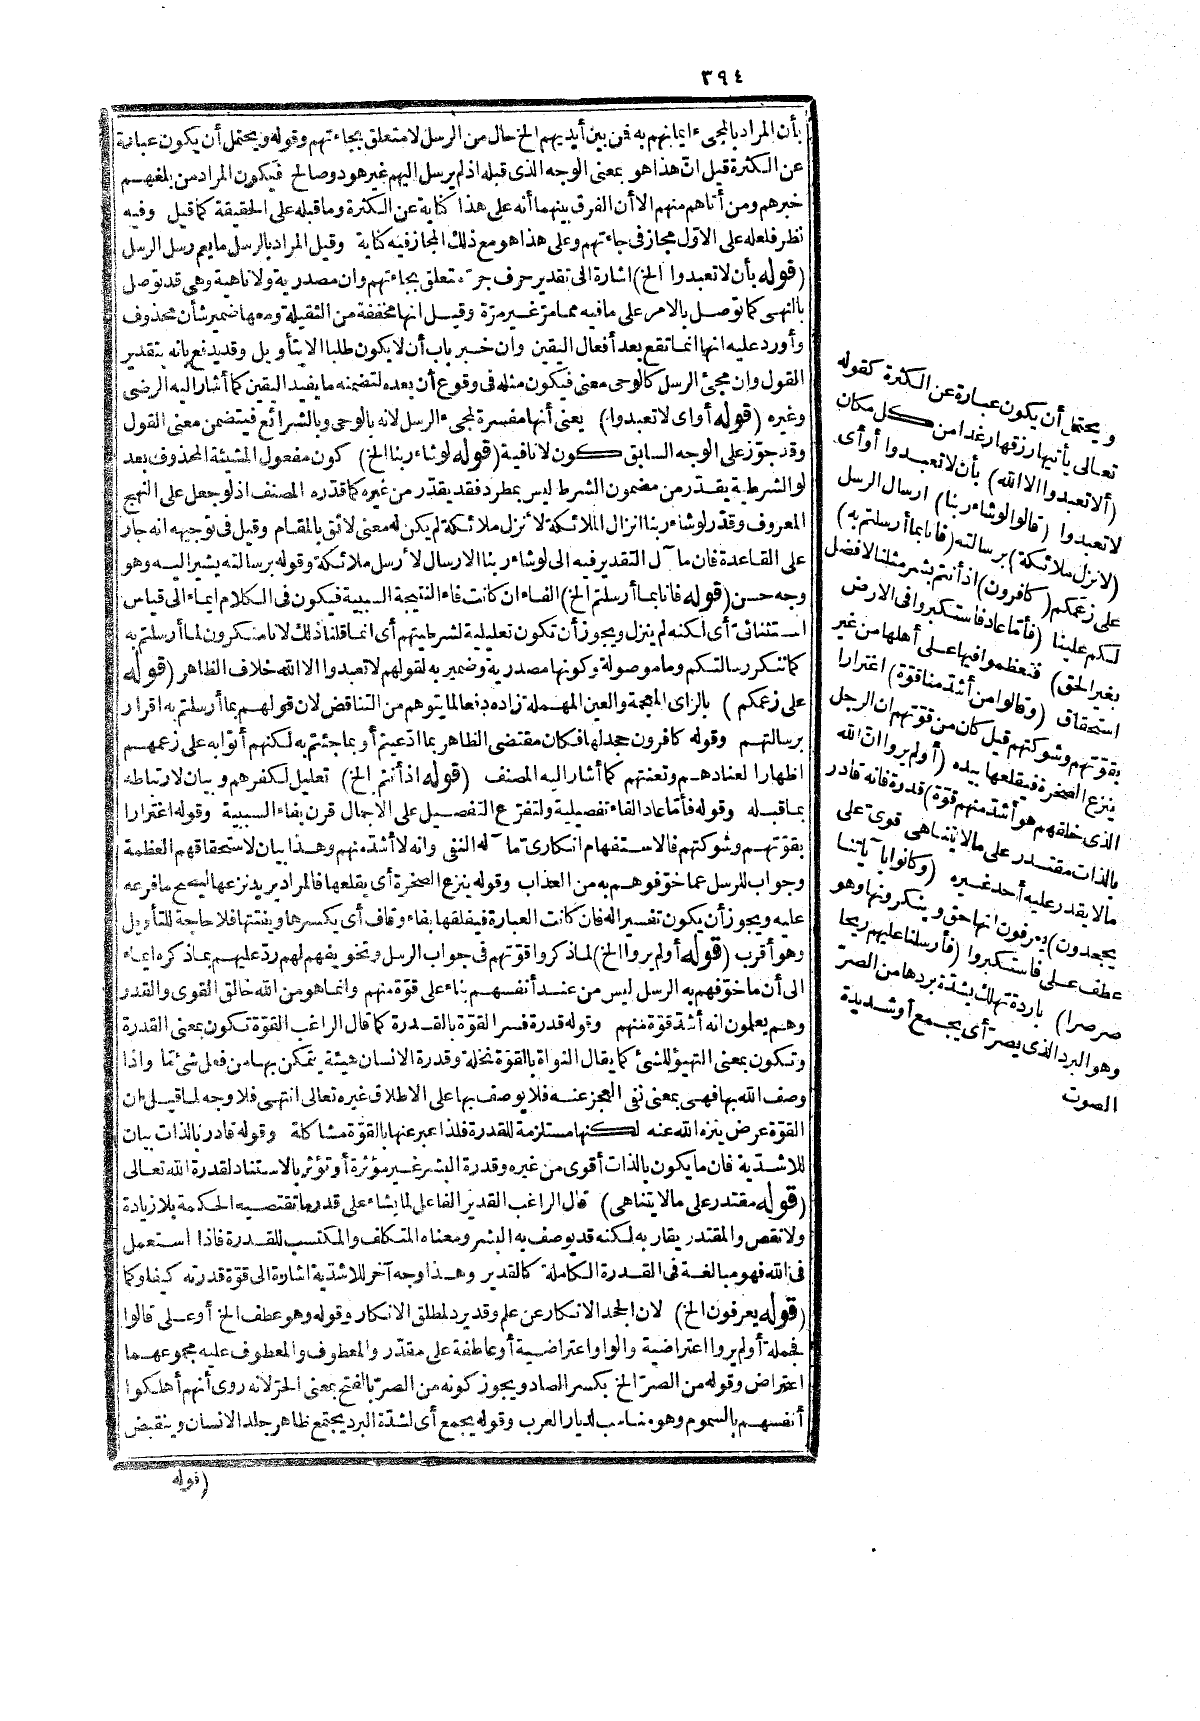 ٣٩٤
بأن المراد بالمجيء ايمانهم به فمن بين أيديهم الخ حال من الرسل لا متعلق بجاءتهم وقوله ويحتمل أن يكون عبارة
عن الكثرة قيل انّ هذا هو بمعنى الوجه الذى قبله اذ لم يرسل اليهم غير هود وصالح فيكون المراد من بلغهم
خبرهم ومن أتاهم منهم الا أن الفرق بينهما أنه على هذا كناية عن الكثرة وما قبله على الحقيقة كما قيل وفيه
نظر فلعله على الاوّل مجاز فى جاءتهم وعلى هذا هو مع ذلك المجاز فيه كناية وقيل المراد بالرسل ما يعم رسل الرسل
(قوله بأن لا تعبدوا الخ) اشارة الى تقدير حرف جرّ متعلق بجاءتهم وان مصدرية ولا ناهية وهى قد توصل
بالنهى كما توصل بالامر على ما فيه مما مرّ غير مرّة وقيل انها مخففة من الثقيلة ومعها ضمير شأن محذوف
وأورد عليه انها انما تقع بعد أفعال اليقين وان خبر باب أن لا يكون طلبا الا بتأويل وقد يدفع بانه بتقدير
القول وان مجئ الرسل كالوحى معنى فيكون مثله فى وقوع أن بعده لتضمنه ما يفيد اليقين كما أشار اليه الرضى
وغيره (قوله أو اى لا تعبدوا) يعنى أنها مفسرة لمجىء الرسل لانه بالوحى وبالشرائع فيتضمن معنى القول
وقد جوّز على الوجه السابق كون لا نافية (قوله لو شاء ربنا الخ) كون مفعول المشيئة المحذوف بعد
لو الشرطية يقدر من مضمون الشرط ليس بمطرد فقد يقدر من غيره كما قدره المصنف اذ لو جعل على النهج
المعروف وقدر لو شاء ربنا انزال الملائكة لأنزل ملائكة لم يكن له معنى لائق بالمقام وقيل فى توجيهه انه جار
على القاعدة فان مآل التقدير فيه الى لو شاء ربنا الارسال لأرسل ملائكة وقوله برسالته يشير اليه وهو
وجه حسن (قوله فانا بما أرسلتم الخ) الفاء ان كانت فاء النتيجة السببية فيكون فى الكلام ايماء الى قياس
استثنائىّ أى لكنه لم ينزل ويجوز أن تكون تعليلية لشرطيتهم أى انما قلنا ذلك لانا منكرون لما أرسلتم به
كما ننكر رسالتكم وما موصولة وكونها مصدرية وضمير به لقولهم لا تعبدوا الا الله خلاف الظاهر (قوله
على زعمكم) بالزاى المعجمة والعين المهملة زاده دفعا لما يتوهم من التناقض لان قولهم بما أرسلتم به اقرار
برسالتهم وقوله كافرون جحد لها فكان مقتضى الظاهر بما ادّعيتم أو بما جئتم به لكنهم أتوا به على زعمهم
اظهارا لعنادهم وتعنتهم كما أشار اليه المصنف (قوله اذ أنتم الخ) تعليل لكفرهم وبيان لارتباطه
بما قبله وقوله فأمّا عاد الفاء تفصيلية ولتفرّع التفصيل على الاجمال قرن بفاء السببية وقوله اغترارا
بقوّتهم وشوكتهم فالاستفهام انكارى مآله النفى وانه لا أشدّ منهم وهذا بيان لاستحقاقهم العظمة
وجواب للرسل عما خوّفوهم به من العذاب وقوله ينزع الصخرة أى يقلعها فالمراد يريد نزعها ليصح ما فرعه
عليه ويجوز أن يكون تفسيرا له فان كانت العبارة فيفلقها بفاء وقاف أى يكسرها ويفتتها فلا حاجة للتأويل
وهو أقرب (قوله أولم يروا الخ) لما ذكروا قوّتهم فى جواب الرسل وتخويفهم لهم ردّ عليهم بما ذكره ايماء
الى أن ما خوّفهم به الرسل ليس من عند أنفسهم بناء على قوّة منهم وانما هو من الله خالق القوى والقدر
وهم يعلمون انه أشدّ قوّة منهم وقوله قدرة فسر القوّة بالقدرة كما قال الراغب القوّة تكون بمعنى القدرة
وتكون بمعنى التهيؤ للشئ كما يقال النواة بالقوّة نخلة وقدرة الانسان هيئة يتمكن بها من فعل شئ مّا واذا
وصف الله بها فهى بمعنى نفى العجز عنه فلا يوصف بها على الاطلاق غيره تعالى انتهى فلا وجه لما قيل ان
القوّة عرض ينزه الله عنه لكنها مستلزمة للقدرة فلذا عبر عنها بالقوّة مشاكلة وقوله قادر بالذات بيان
للاشدّية فان ما يكون بالذات أقوى من غيره وقدرة البشر غير مؤثرة أو تؤثر بالاستناد لقدرة الله تعالى
(قوله مقتدر على ما لا يتناهى) قال الراغب القدير الفاعل لما يشاء على قدر ما تقتضيه الحكمة بلا زيادة
ولا نقص والمقتدر يقاربه لكنه قد يوصف به البشر ومعناه المتكلف والمكتسب للقدرة فاذا استعمل
فى الله فهو مبالغة فى القدرة الكاملة كالقدير وهذا وجه آخر للاشدّية اشارة الى قوّة قدرته كيفا وكما
(قوله يعرفون الخ) لان الجحد الانكار عن علم وقد يرد لمطلق الانكار وقوله وهو عطف الخ أو على قالوا
فجملة أولم يروا اعتراضية والواو اعتراضية أو عاطفة على مقدّر والمعطوف والمعطوف عليه مجموعهما
اعتراض وقوله من الصرّ الخ بكسر الصاد ويجوز كونه من الصرّ بالفتح بمعنى الحرّ لانه روى أنهم أهلكوا
أنفسهم بالسموم وهو مناسب لديار العرب وقوله يجمع أى لشدّة البرد يجتمع ظاهر جلد الانسان وينقبض
(قوله
ويحتمل أن يكون عبارة عن الكثرة كقوله
تعالى يأتيها رزقها رغدا من كل مكان
(ألا تعبدوا الا الله) بأن لا تعبدوا أو أى
لا تعبدوا (قالوا لو شاء ربنا) ارسال الرسل
(لانزل ملائكة) برسالته (فانا بما أرسلتم به)
على زعمكم (كافرون) اذ أنتم بشر مثلنا لا فضل
لكم علينا (فأمّا عاد فاستكبروا فى الارض
بغير الحق) فتعظموا فيها على أهلها من غير
استحقاق (وقالوا من أشدّ منا قوّة) اغترارا
بقوّتهم وشوكتهم قيل كان من قوّتهم ان الرجل
ينزع الصخرة فيقلعها بيده (أولم يروا انّ الله
الذى خلقهم هو أشدّ منهم قوّة) قدرة فانه قادر
بالذات مقتدر على ما لا يتناهى قوىّ على
ما لا يقدر عليه أحد غيره (وكانوا بآياتنا
يجحدون) يعرفون انها حق وينكرونها وهو
عطف على فاستكبروا (فأرسلنا عليهم ريحا
صرصرا) باردة تهلك بشدّة بردها من الصرّ
وهو البرد الذى يصرّ أى يجمع أو شديدة
الصوت